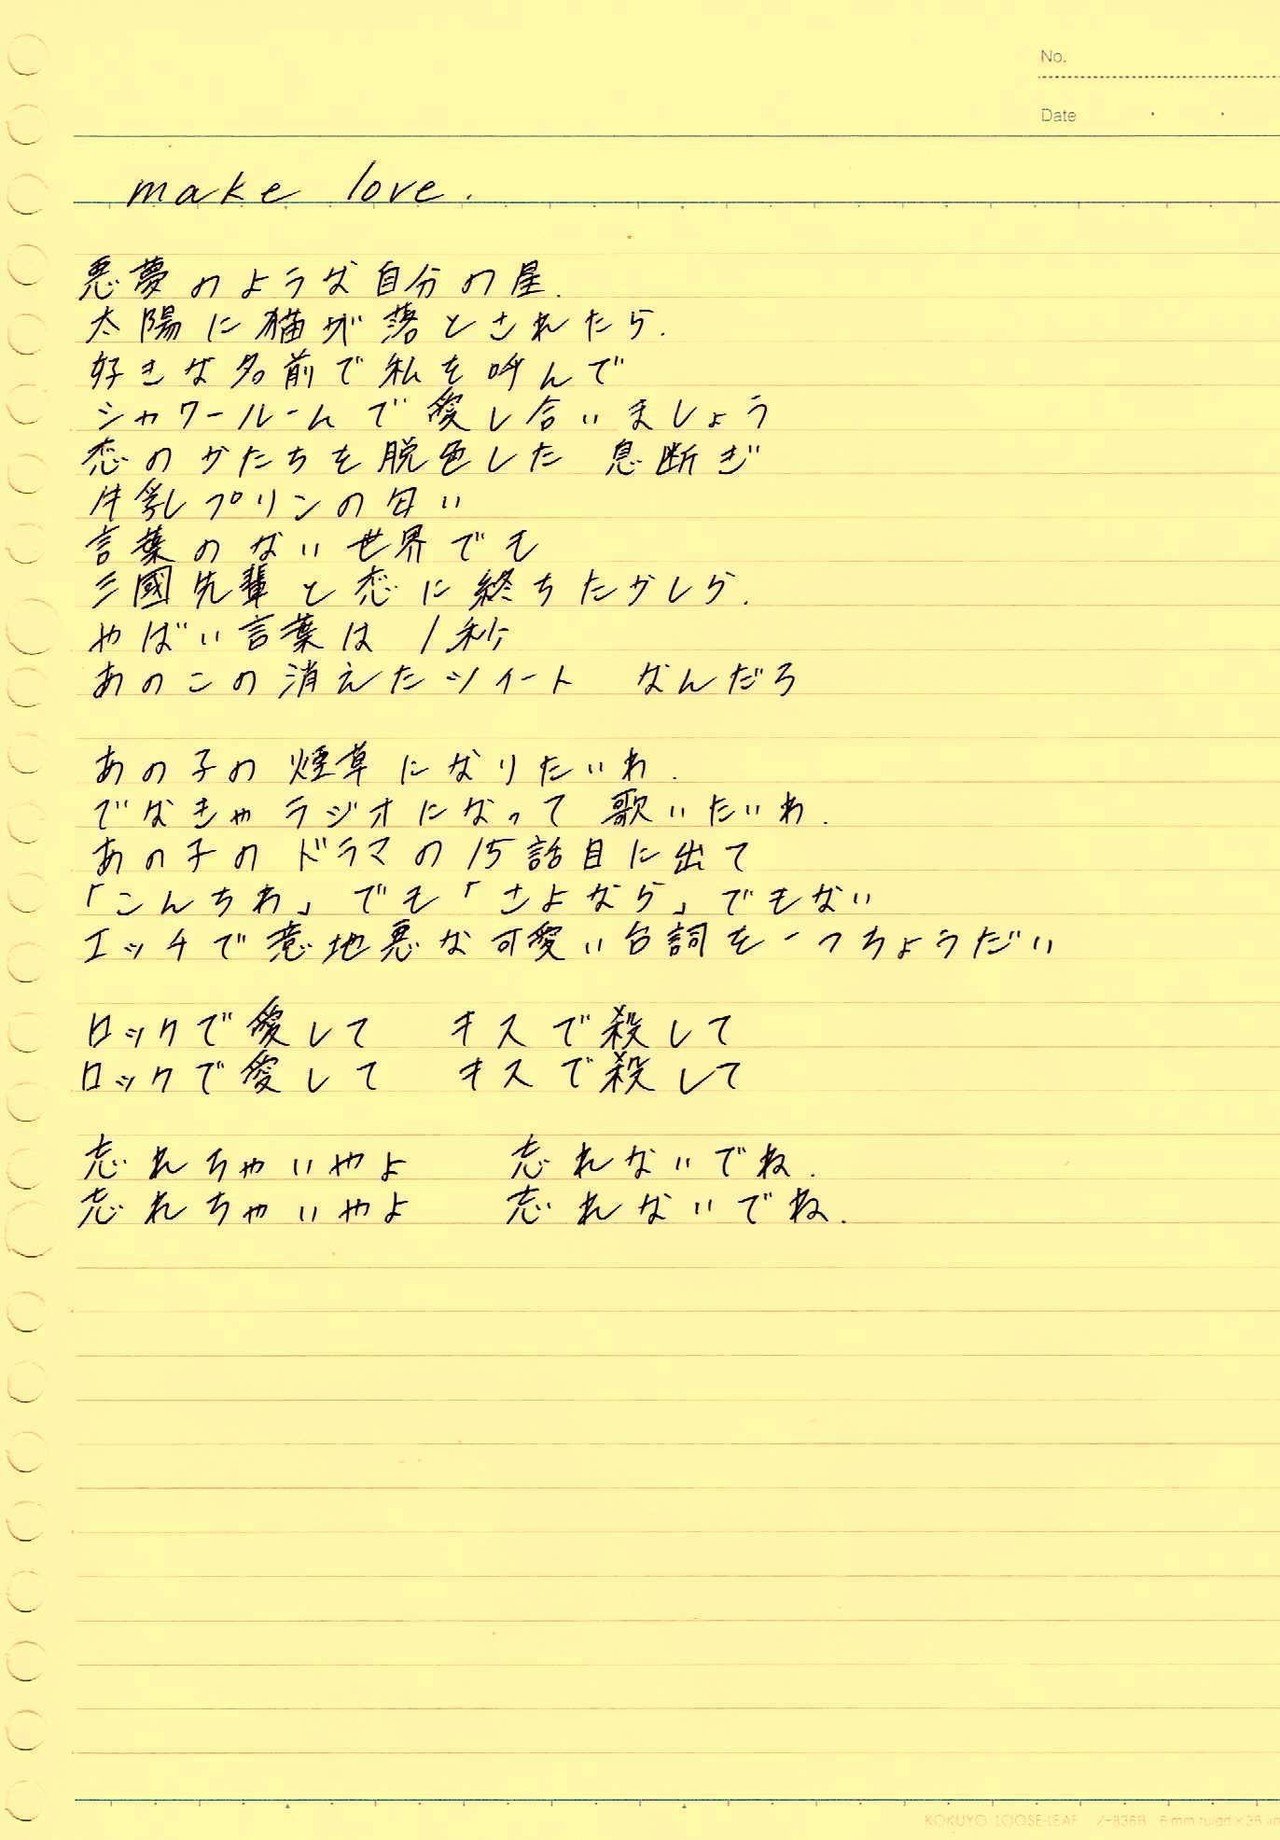 No.
Date
make love.
悪夢のような自分の星.
太陽に猫が落とされたら.
好きな名前で私を呼んで
シャワールームで愛し合いましょう
恋のかたちを脱色した 息断ぎ
牛乳プリンの匂い
言葉のない世界でも
三國先輩と恋に終ちたかしら.
やばい言葉は 1秒
あのこの消えたツイート なんだろ
あの子の煙草になりたいわ.
でなきゃラジオになって歌いたいわ.
あの子のドラマの15話目に出て
「こんちわ」でも「さよなら」でもない
エッチで意地悪な可愛い台詞を一つちょうだい
ロックで愛して キスで殺して
ロックで愛して キスで殺して
忘れちゃいやよ 忘れないでね.
忘れちゃいやよ 忘れないでね.
KOKUYO LOOSE-LEAF ノ-836B 6 mm ruled×36